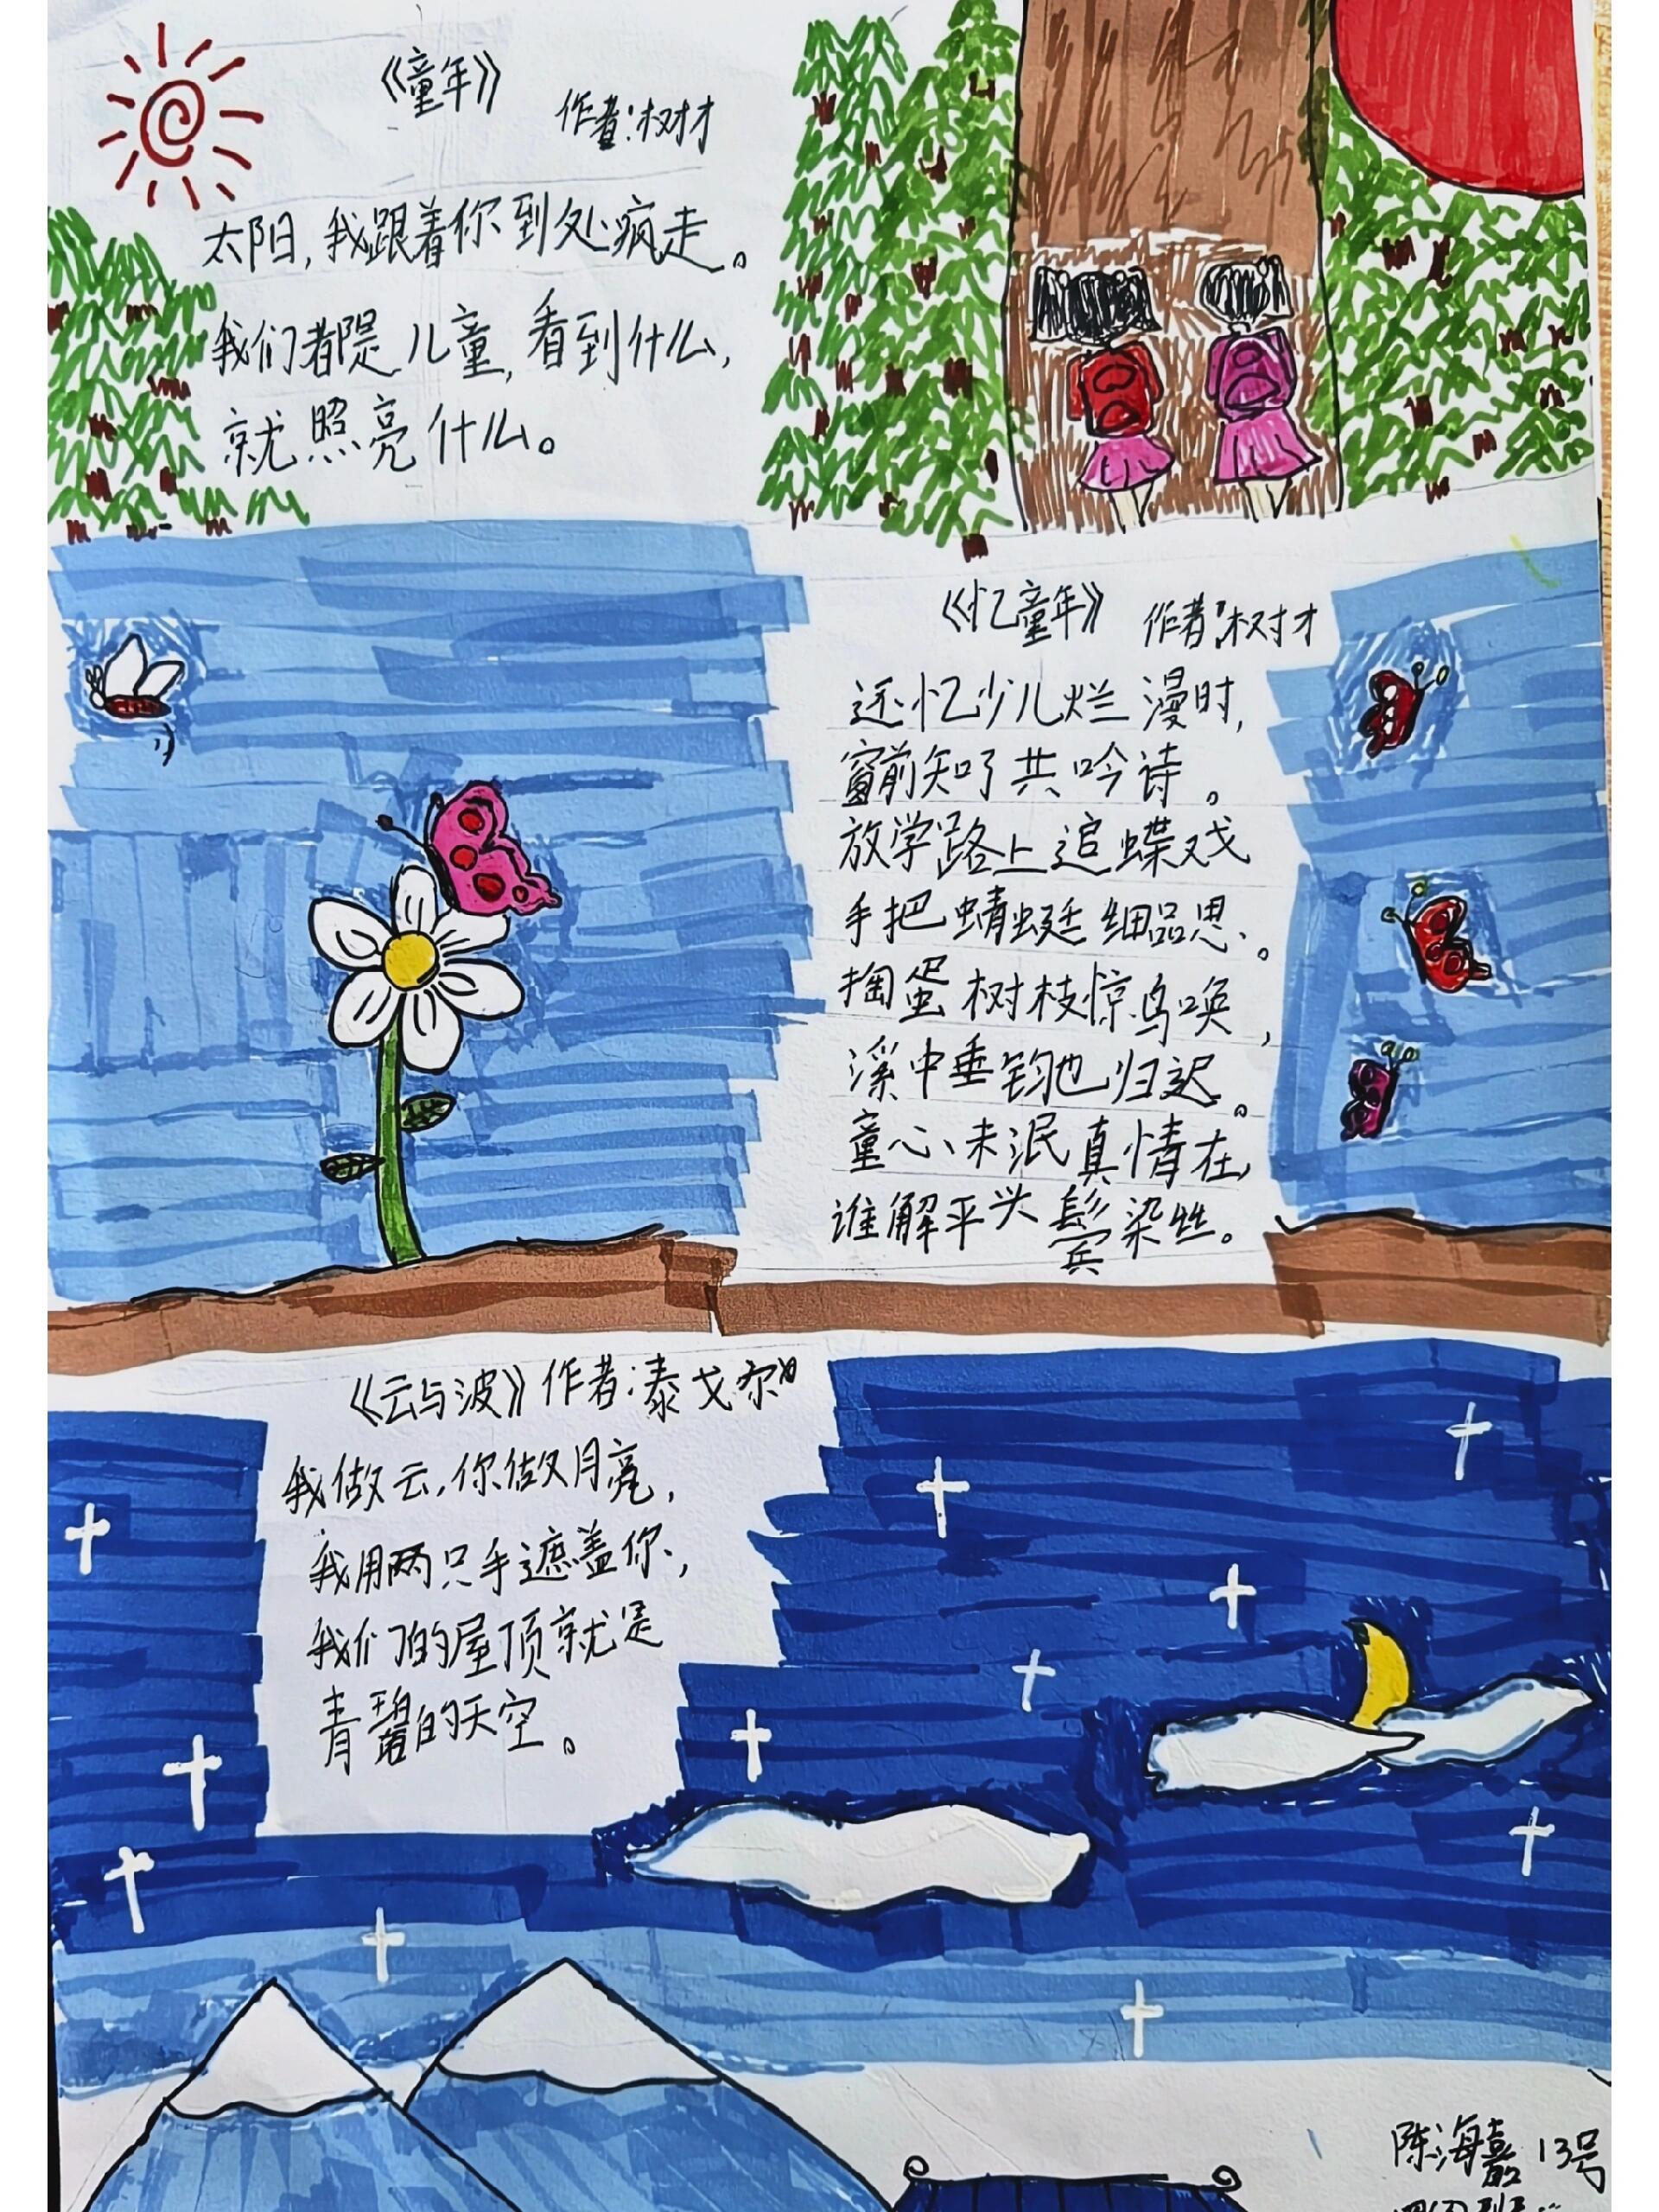 《童年》
作者:树才
太阳,我跟着你到处疯走。
我们都是儿童,看到什么,
就照亮什么。
《忆童年》 作者:树才
还忆少儿烂漫时,
窗前知了共吟诗。
放学路上追蝶戏
手把蜻蜓细品思。
掏蛋树枝惊鸟唤,
溪中垂钓也归迟。
童心未泯真情在,
谁解平头鬓染丝。
《云与波》作者:泰戈尔
我做云,你做月亮,
我用两只手遮盖你,
我们的屋顶就是
青碧的天空。
陈海嘉 13号